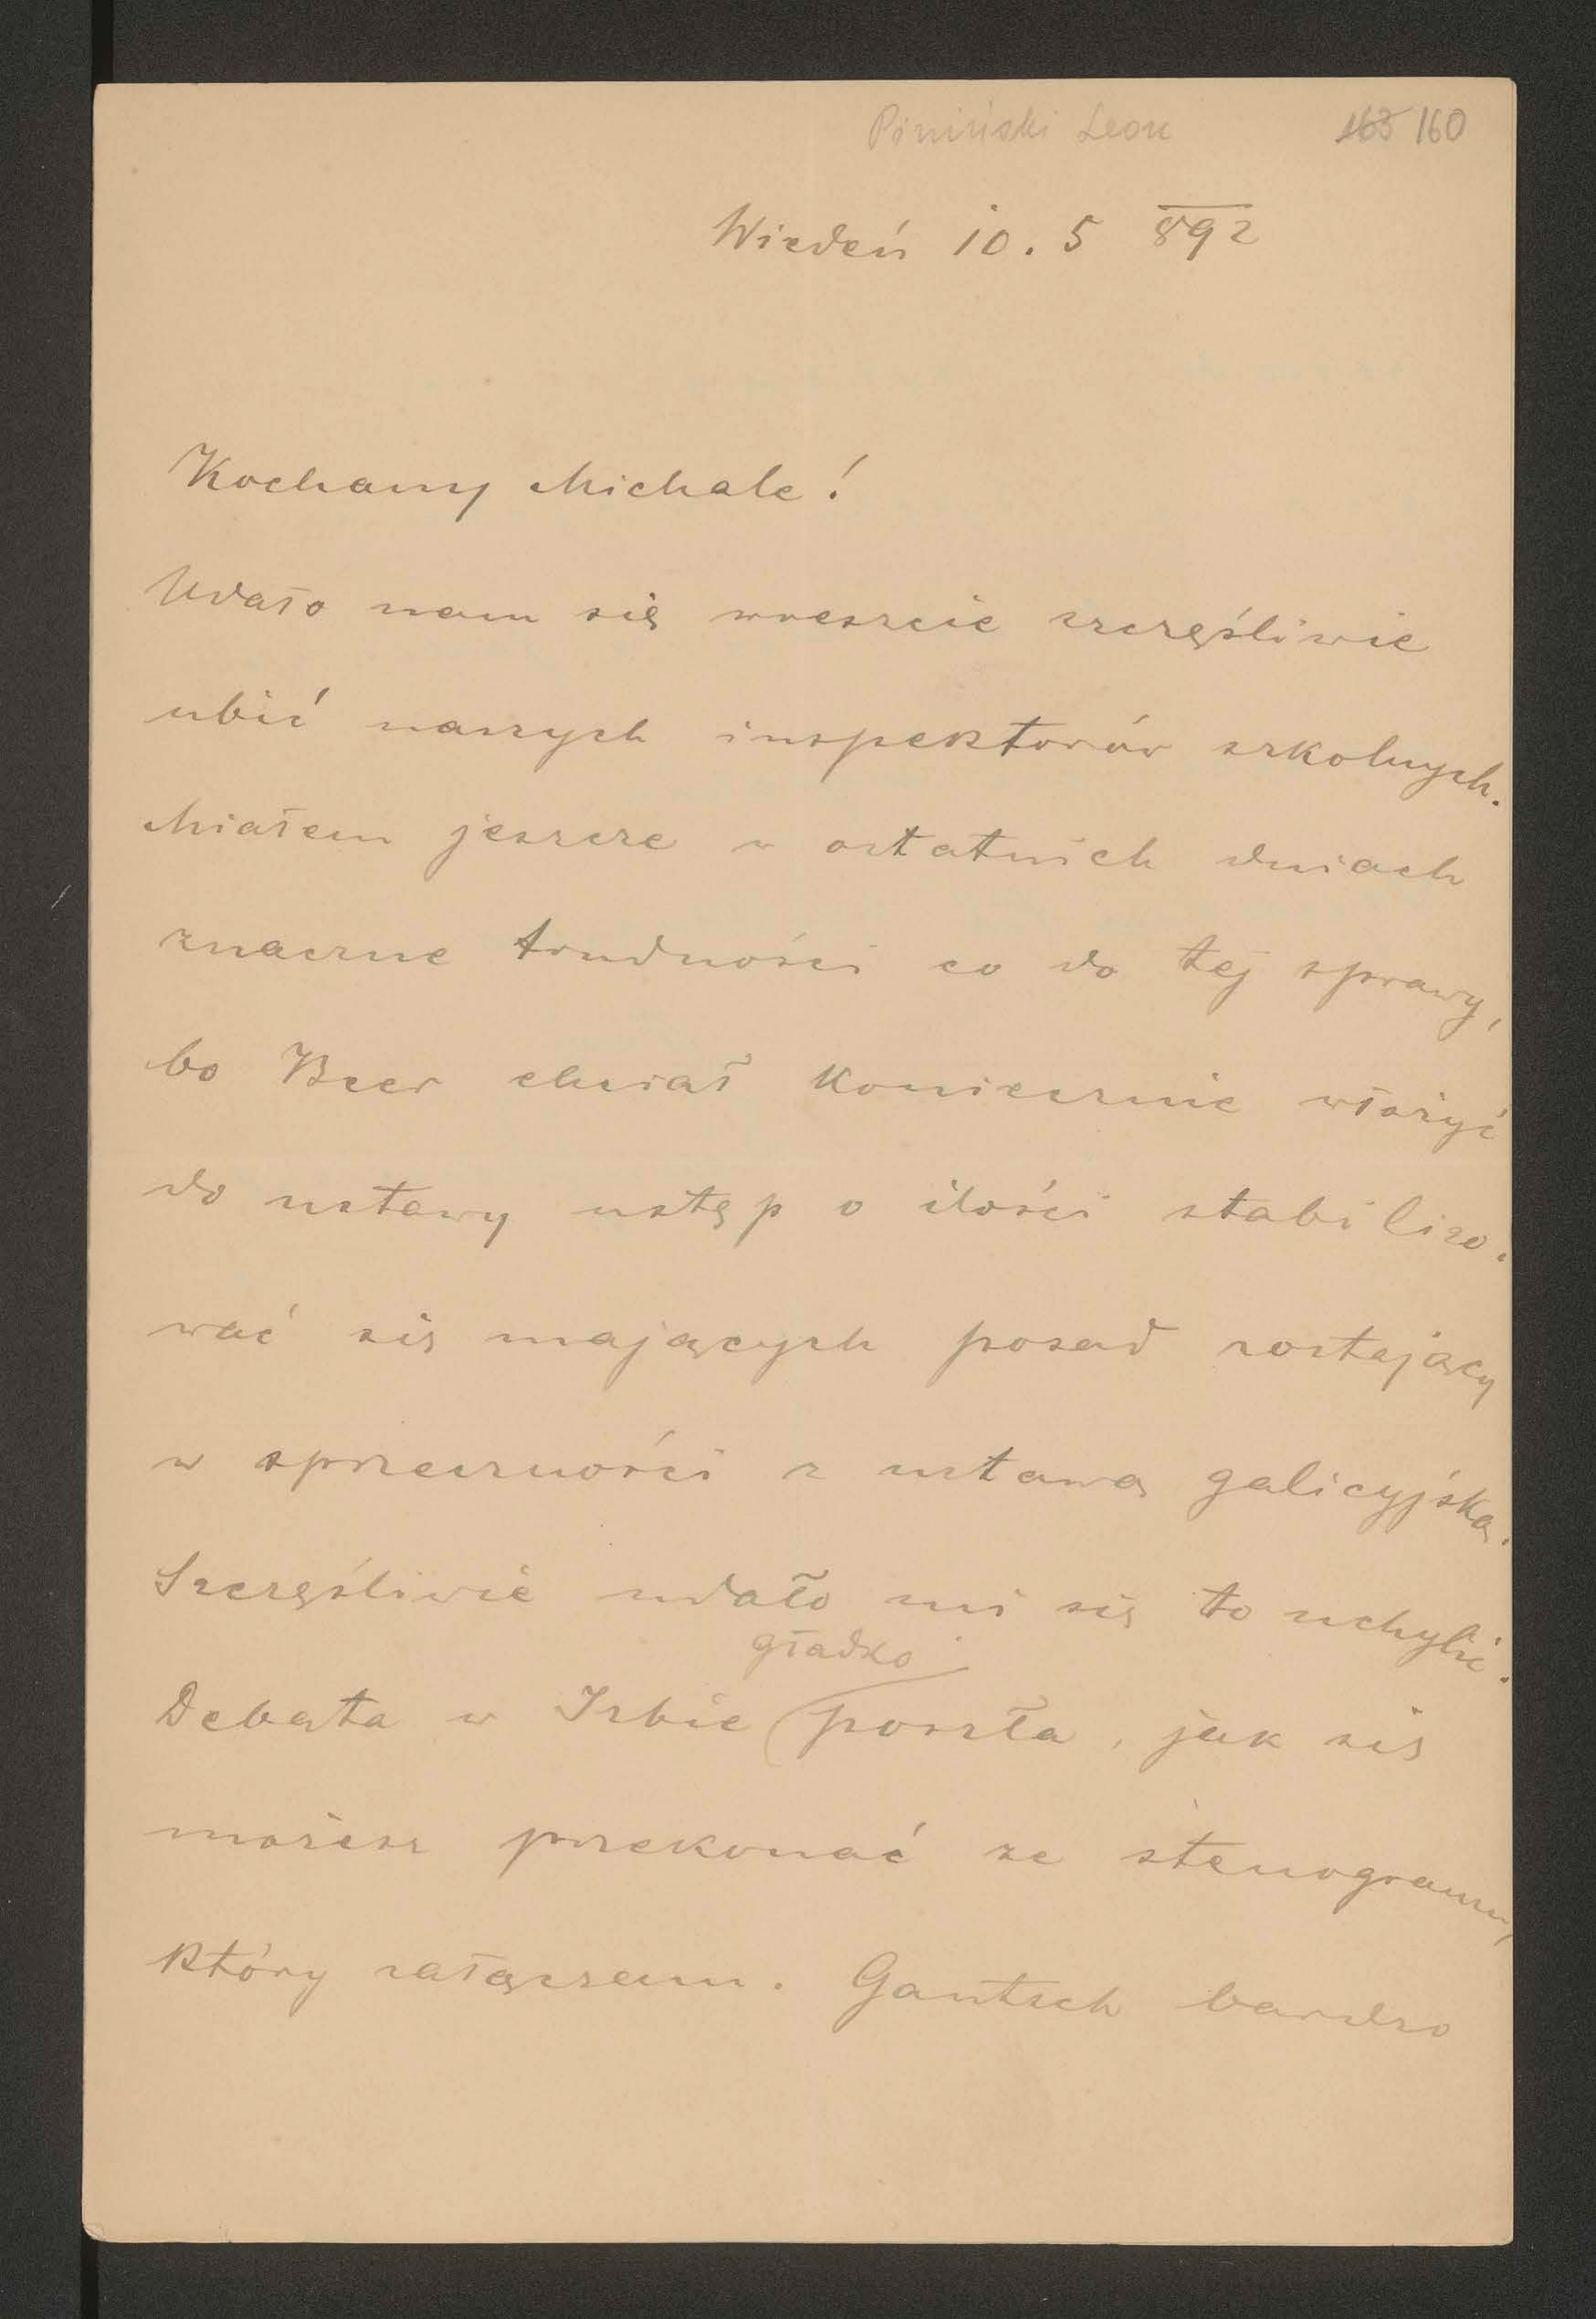 Piniński Leon 163 160
Wiedeń 10. 5 892
Kochany Michale!
Udało nam się wreszcie szczęśliwie
ubić naszych inspektorów szkolnych.
Miałem jeszcze w ostatnich dniach
znaczne trudności co do tej sprawy,
bo Beer chciał koniecznie włożyć
do ustawy ustęp o ilości stabilizo-
wać się mających posad zostający
w sprzeczności z ustawą galicyjską.
Szczęśliwie udało mi się to uchylić.
gładko
Debata w Izbie poszła, jak się
możesz przekonać ze stenogramu,
który załączam. Gautsch bardzo